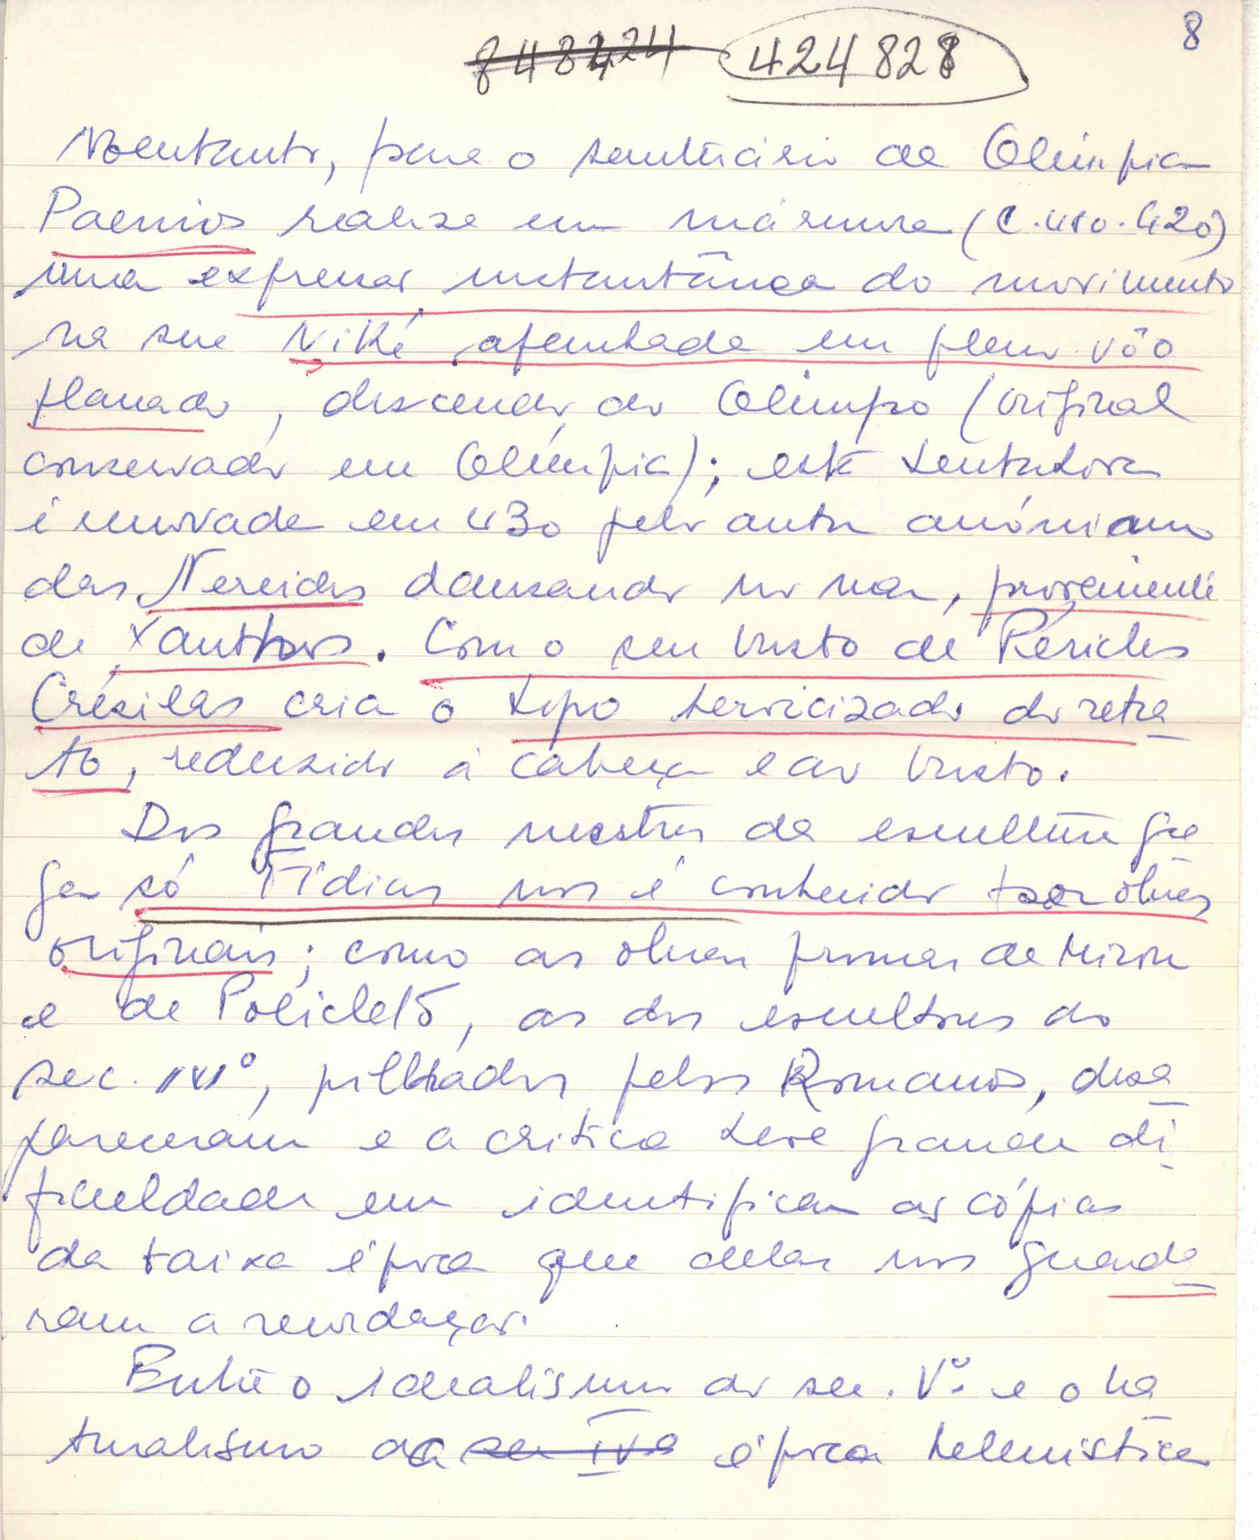 8
848424 424828
Noentanto, para o santuário de Olímpia
Paenios realiza em mármore (c. 410-420)
uma expressão instantânea do movimento
na sua Niké apanhada em pleno vôo
planado, descendo do Olimpo (original
conservado em Olímpia); esta tentativa
é renovada em 430 pelo autor anónimo
das Nereidas dansando no mar, proveniente
de Xanthos. Com o seu busto de Péricles
Crésilas cria o tipo heroicizado do retra
to, reduzido à cabeça e ao busto.
Dos grandes mestres da escultura gre
ga só Fídias nos é conhecido por obras
originais; como as obras primas de Miron
e de Policleto, as dos escultores do
séc. IVº, pilhados pelos Romanos, desa
pareceram e a critica teve grande di
ficuldade em identificar as cópias
da baixa época que delas nos guarda
ram a recordação.
Entre o idealismo do séc. Vº e o na
turalismo da sec IVº época helenistica